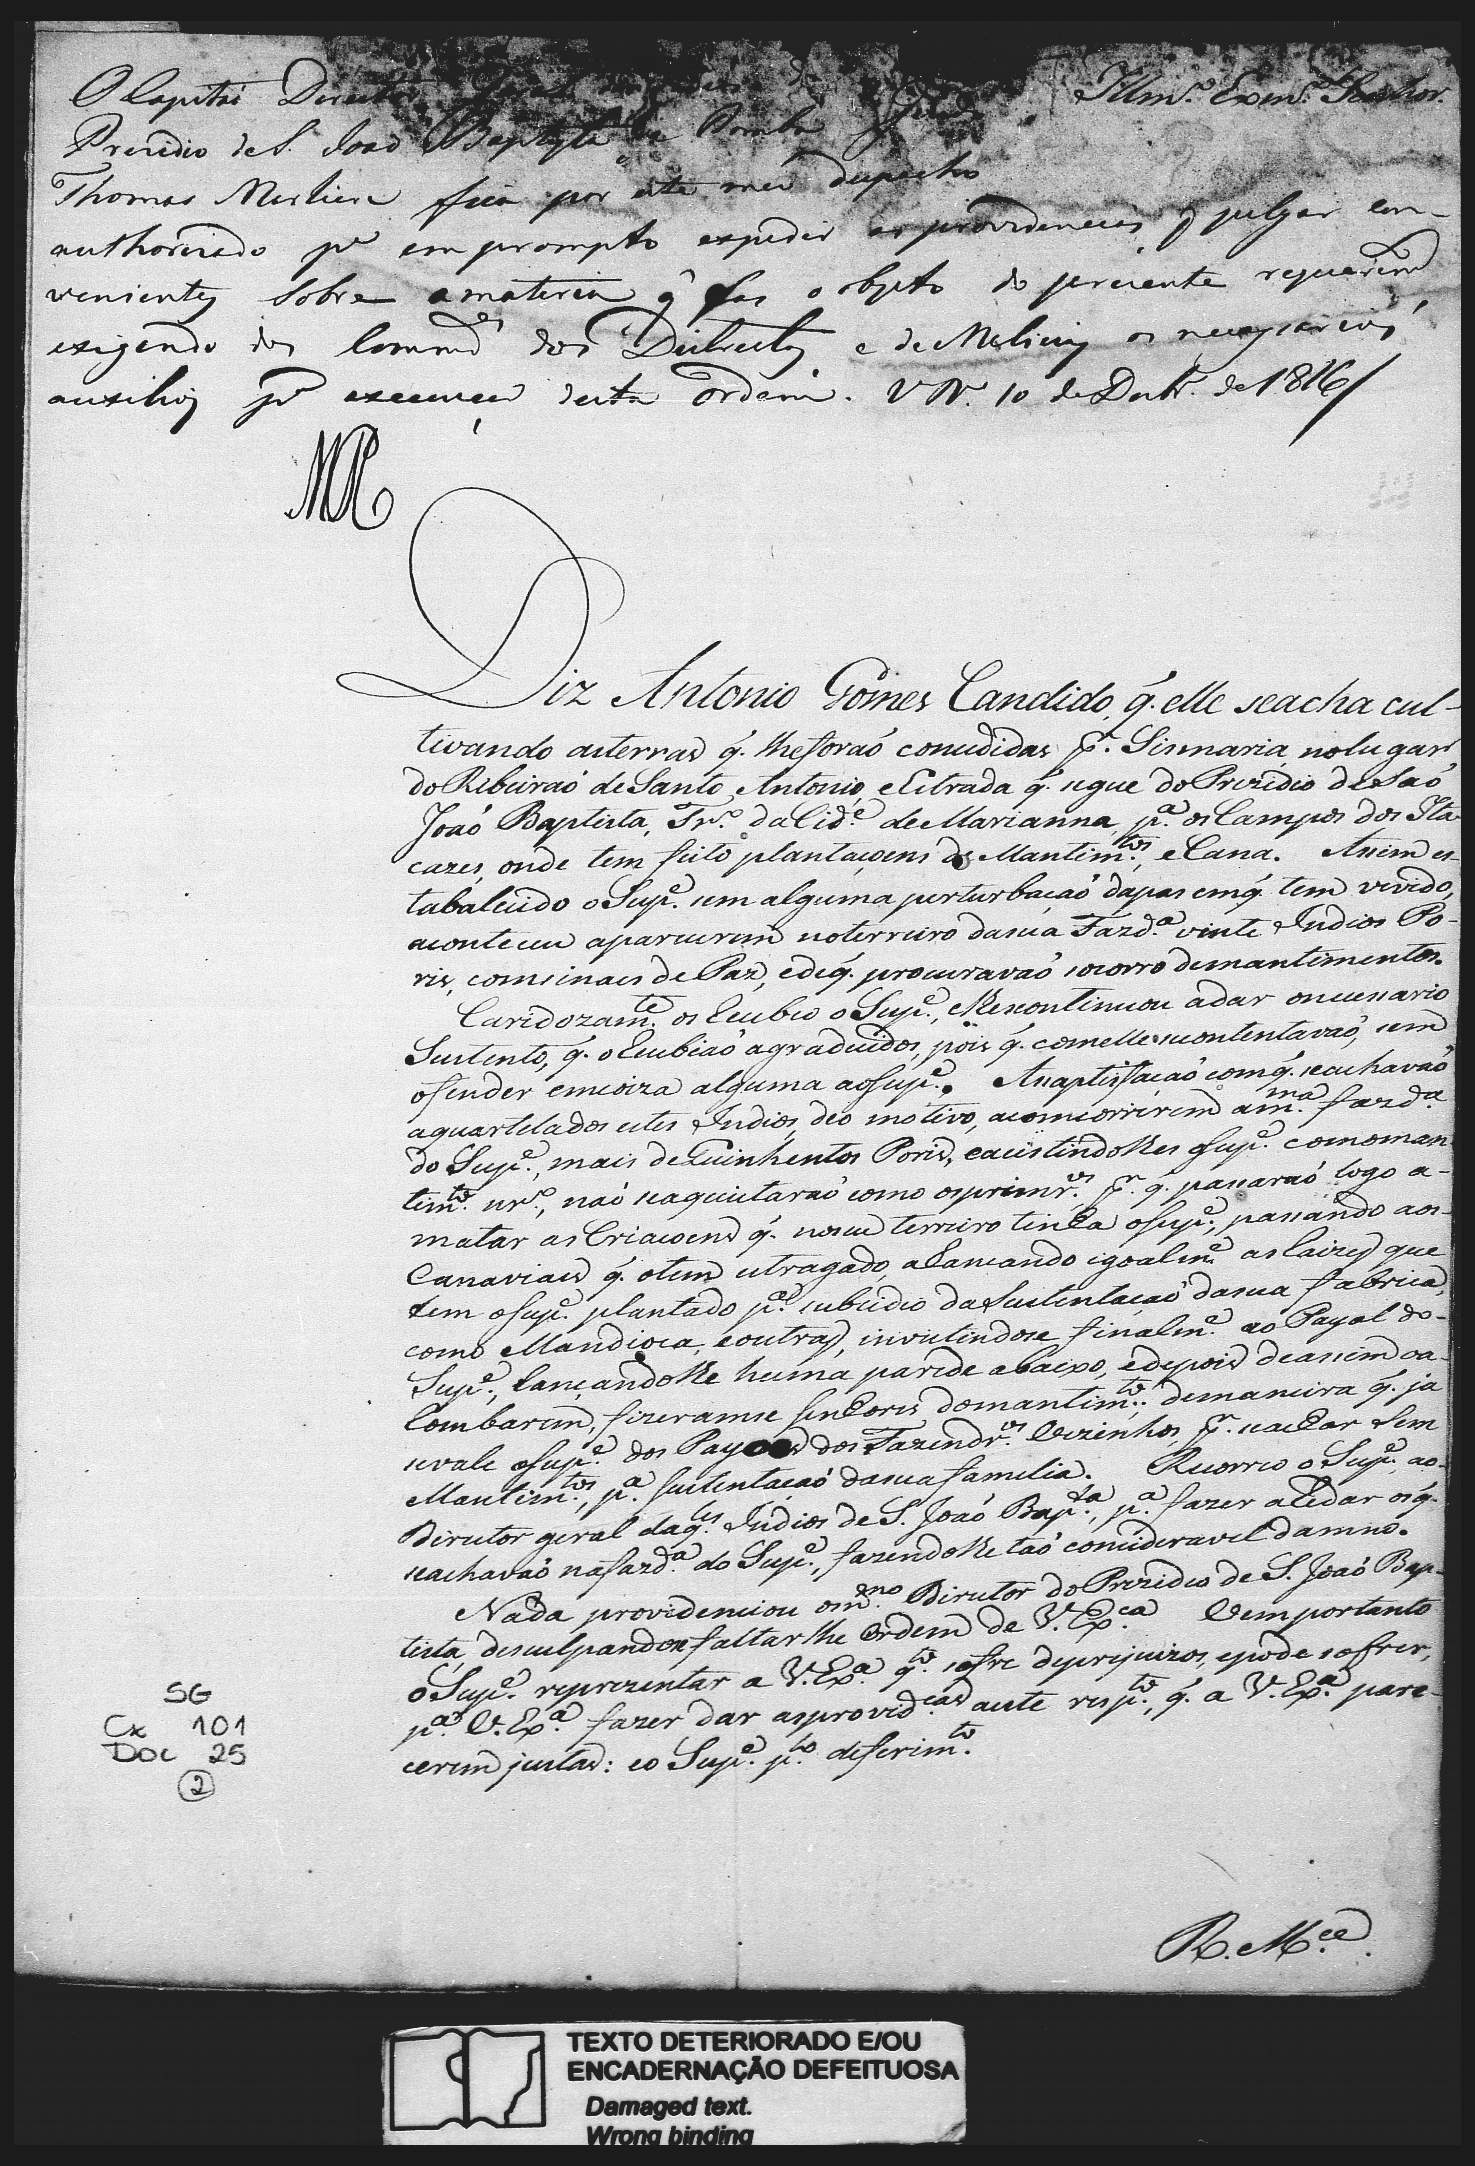 Illm.º Exm.º Senhor.
O Capitaõ Director
Prezidio de S. Joaõ Baptista da Pomba
Thomas Merliere fica por este meu despacho
authorizado p.ª em prompto expedir as providencias q̃ julgar con-
venientes sobre a materia q̃ faz o objeto do prezente requerim.to
exigindo dos Comm.des dos Districtos e de Milicias os necessarios
auxilios p.ª execuçaõ desta ordem. V.ª R.ª 10 de Dezbr.º de 1816/
Diz Antonio Gomes Candido, q̃. elle seacha cul-
tivando asterras q̃. lheforaõ concedidas p.r Sismaria, nolugar
do Ribeiraõ de Santo Antonio, e Estrada q̃. segue do Prezidio de Saõ
Joaõ Baptista, Tr.º da Cid.e de Marianna, p.ª os Campos dos Ita
cazes, onde tem feito plantaçoens de Mantim.tos, e Cana. Assim es-
tabalecido o Sup.e sem alguma perturbaçaõ dapas emq̃. tem vivido,
aconteceu aparecerem noterreiro dasua Fazd.ª vinte Indios Po-
ris, comsinaes de Paz, edeq̃. procuravaõ socorro demantimentos.
Caridozam.te os Recebeo o Sup.e, elhescontinuou adar onecessario
Sustento, q̃. o Recebiaõ agradecidos, pois q̃. comelle secontentavaõ, sem
ofender emcoiza alguma aoSup.e. Asaptisfacaõ comq̃. seachavaõ
aquartelados estes Indios, deo motivo, aconcorrerem am.ma fazd.ª
do Sup.e, mais de Quinhentos Poris, eacistindolhes oSup.e comoman
tim.to nr.º, naõ seaquietaraõ como osprimr.os, p.r q̃. passaraõ logo a-
matar as Criacoens q̃. noseu terreiro tinha oSup.e, passando aos
Canaviaes q̃. otem estragado, arancando igoalm.e as Raizes que
tem oSup.e plantado p.ª subcidio daSustentaçaõ dasua fabrica,
como Mandioca, eoutras, investindose finalm.e ao Payol do-
Sup.e, lançandolhe huma parede abaixo, edepois deassim oa-
Rombarem, fizeramse senhoris domantim.to, demaneira q̃. ja
sevale oSup.e dos Payoes dos Fazendr.os Vezinhos, p.r seachar sem
Mantim.tos, p.ª sustentaçaõ dasuafamilia. Recorreo o Sup.e ao-
Director geral daq.les Indios de S. Joaõ Bap.ta, p.ª fazer aRedar osq̃.
seachavaõ nafazd.ª do Sup.e, fazendolhe taõ concideravel damno.
Nada providenciou om.mo Director do Prezidio de S. Joaõ Bap-
tista, desculpandose faltarlhe Ordem de V. Ex.ca Vem portanto
o Sup.e reprezentar a V. Ex.ª q.to sofre deprejuizos, epode sofrer,
p.ª V. Ex.ª fazer dar asprovid.cas aeste resp.to, q̃. a V. Ex.ª pare-
cerem justas: eo Sup.e p.to deferim.to.
R. M.ce
SG
Cx 101
Doc 25
2
TEXTO DETERIORADO E/OU
ENCADERNAÇÃO DEFEITUOSA
Damaged text.
Wrong binding